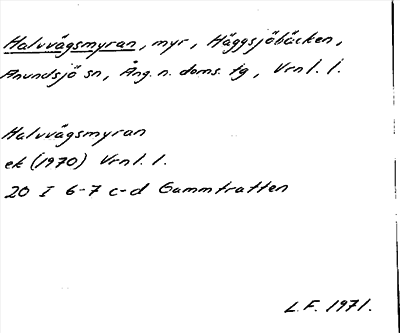 Halvvägsmyran, myr, Häggsjöbäcken,
Anundsjö sn, Ång. n. doms. tg, Vrnl. l.
Halvvägsmyran
ek (1970) Vrnl. l.
20 I 6-7 c-d Gammtratten
L.F. 1971.